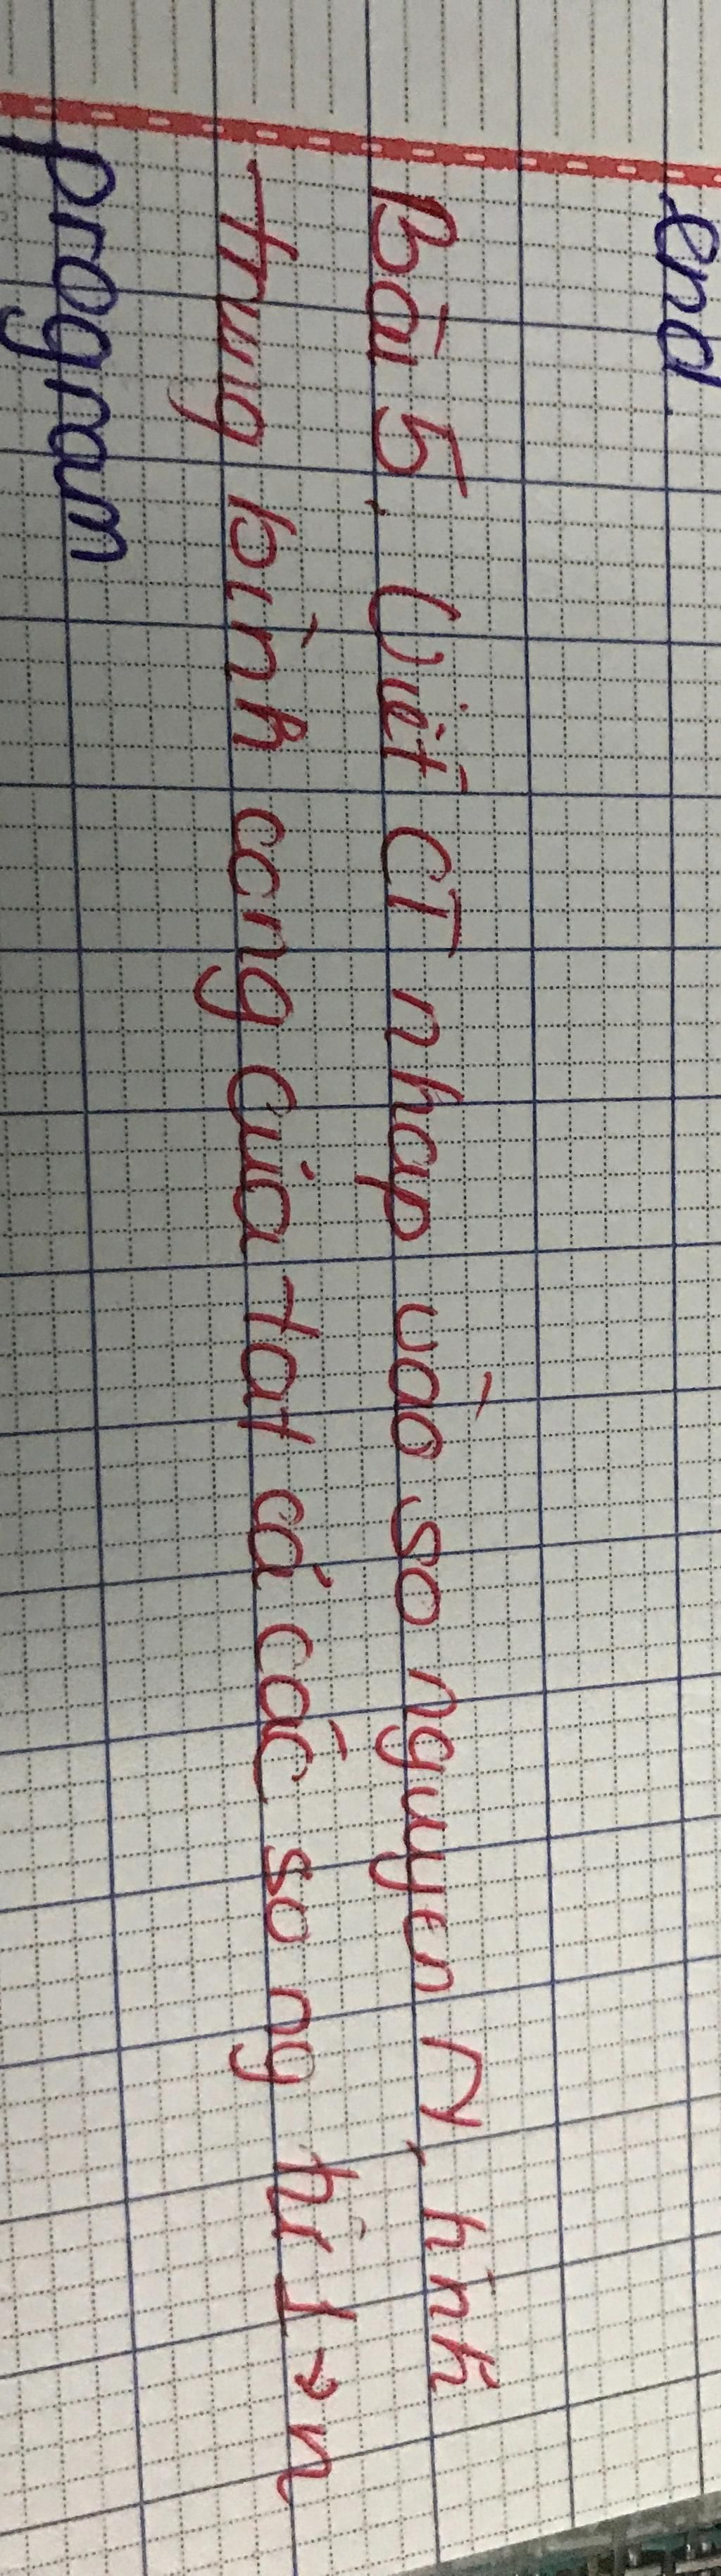 end.
Bài 5. Viết CT nhap vào so nguyen N, tính
trung bình cong của tat cả các so ng từ 1 → n
program